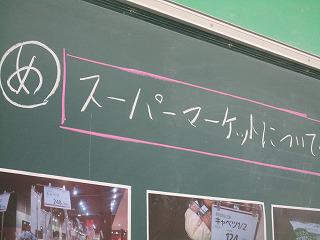 め
スーパーマーケットについて
248
キャベツ1/2
124